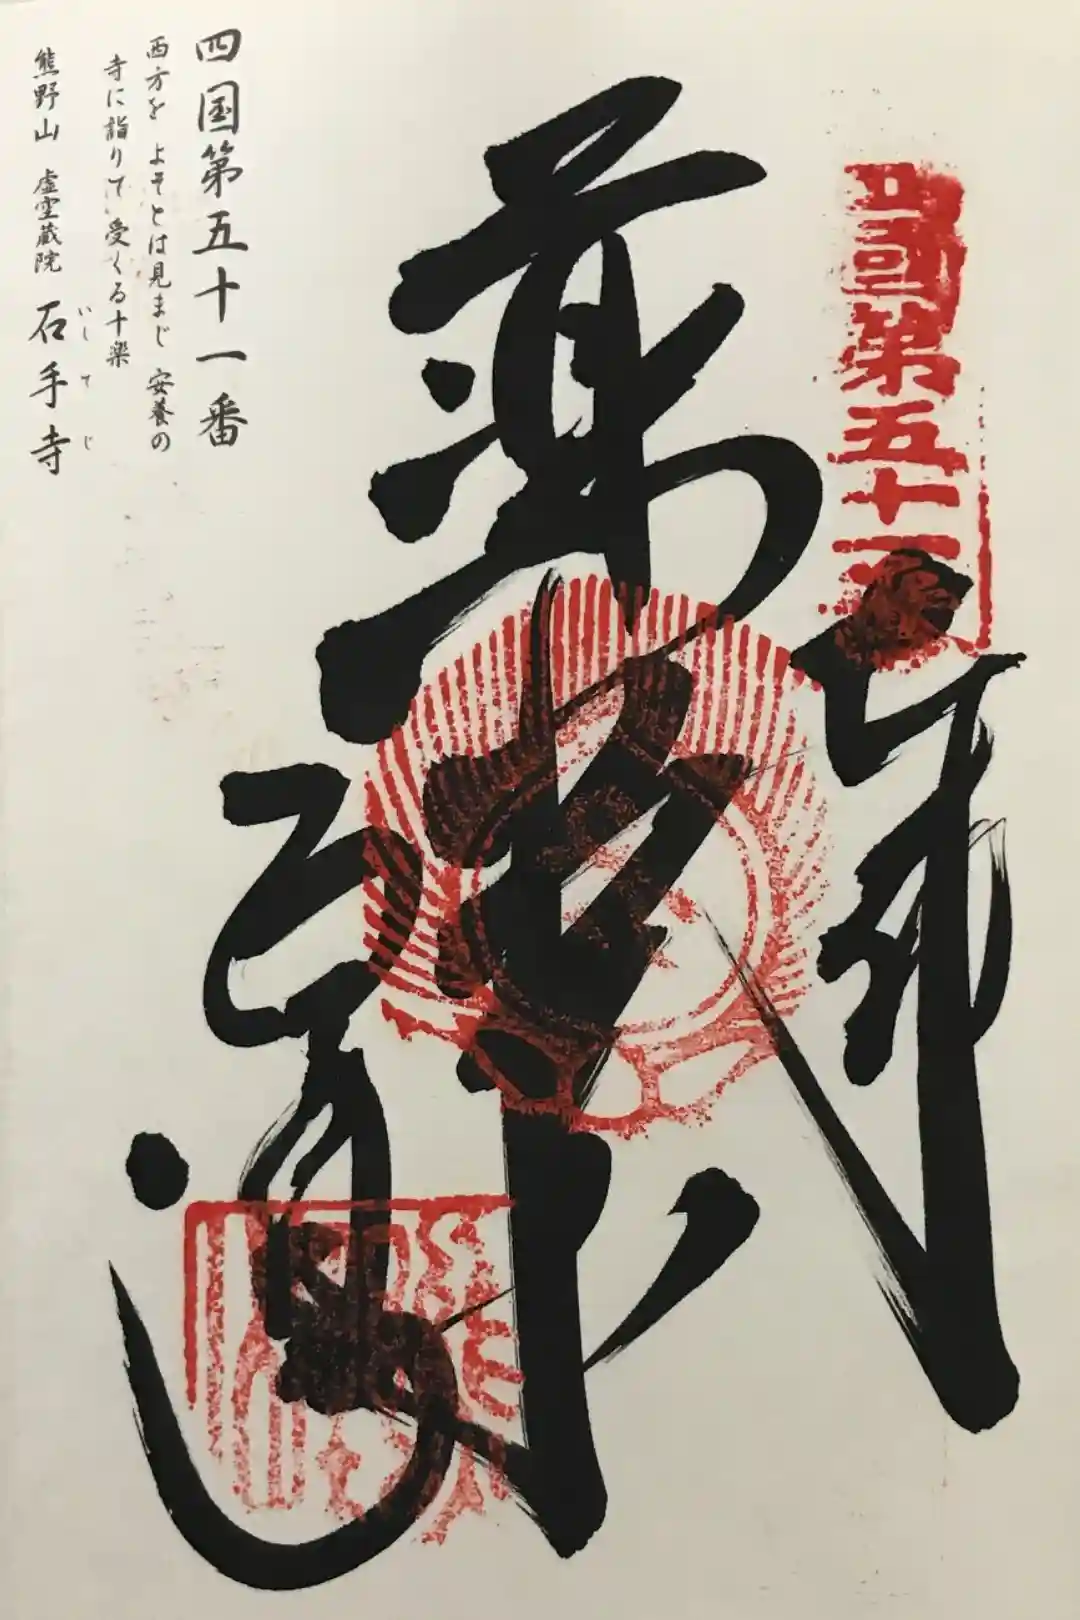 四國第五十一番
奉拝
薬師
石手寺
四国第五十一番
西方を よそとは見まじ 安養の
寺に詣りて 受くる十楽
熊野山 虚空蔵院 石手寺
いしてじ